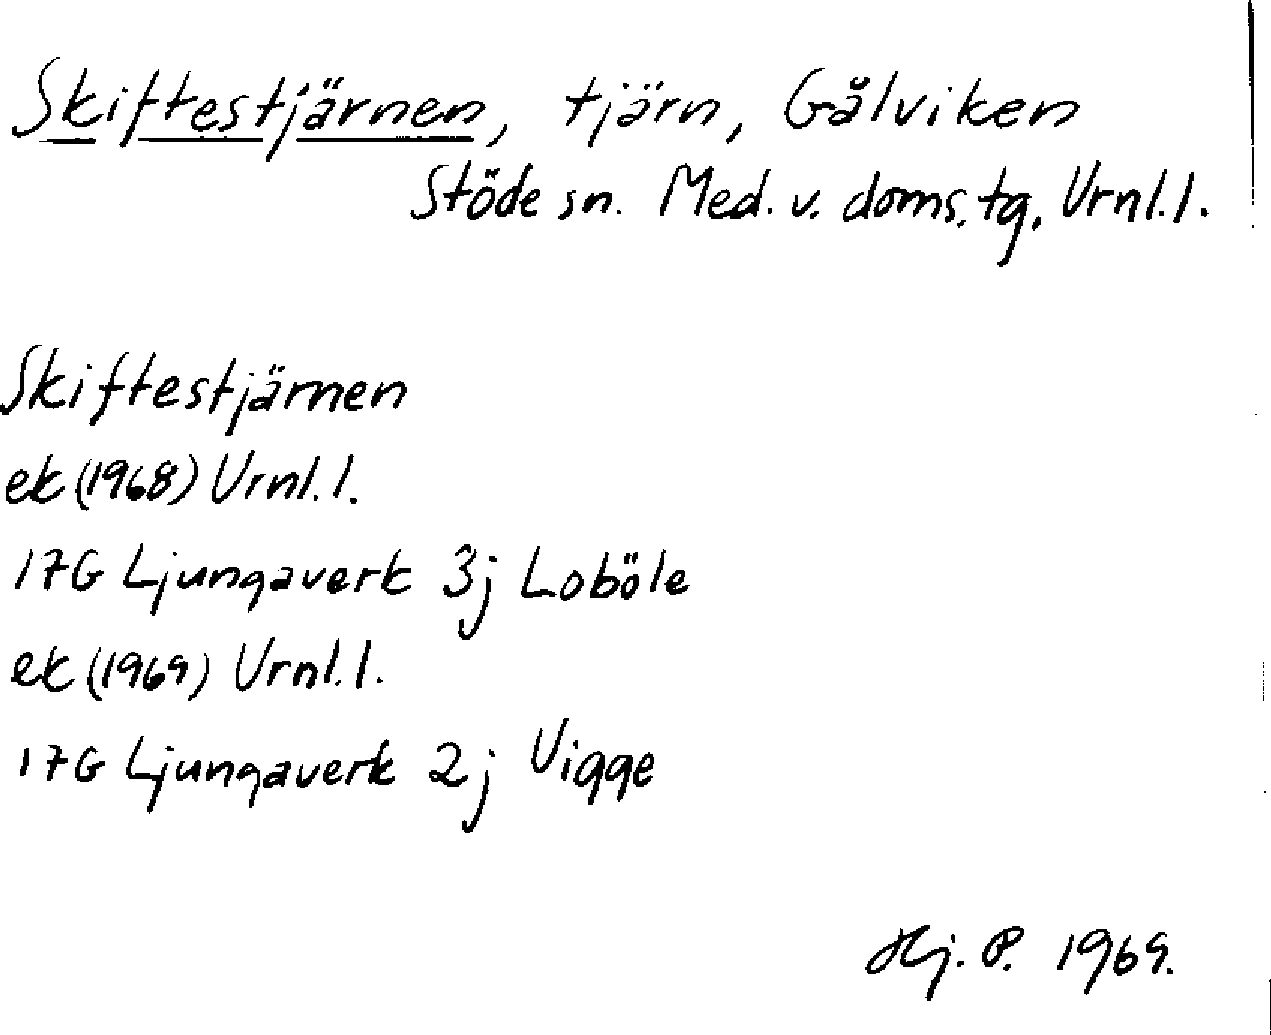 Skiftestjärnen, tjärn, Gålviken
Stöde sn. Med. v. doms. tg, Vrnl. l.
Skiftestjärnen
ek (1968) Vrnl. l.
17G Ljungaverk 3j Loböle
ek (1969) Vrnl. l.
17G Ljungaverk 2j Vigge
Hj. P. 1969.